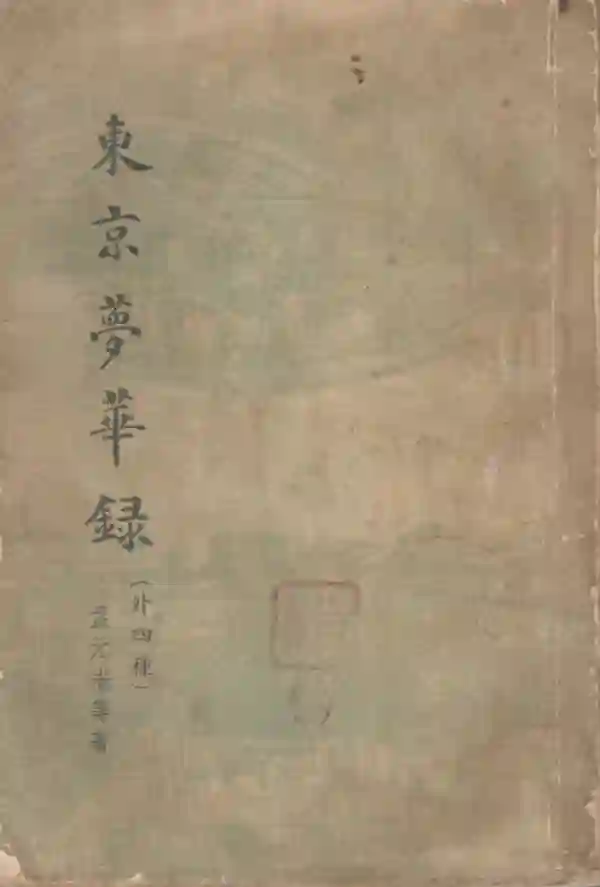 東京夢華録
（外四種）
孟元老等著